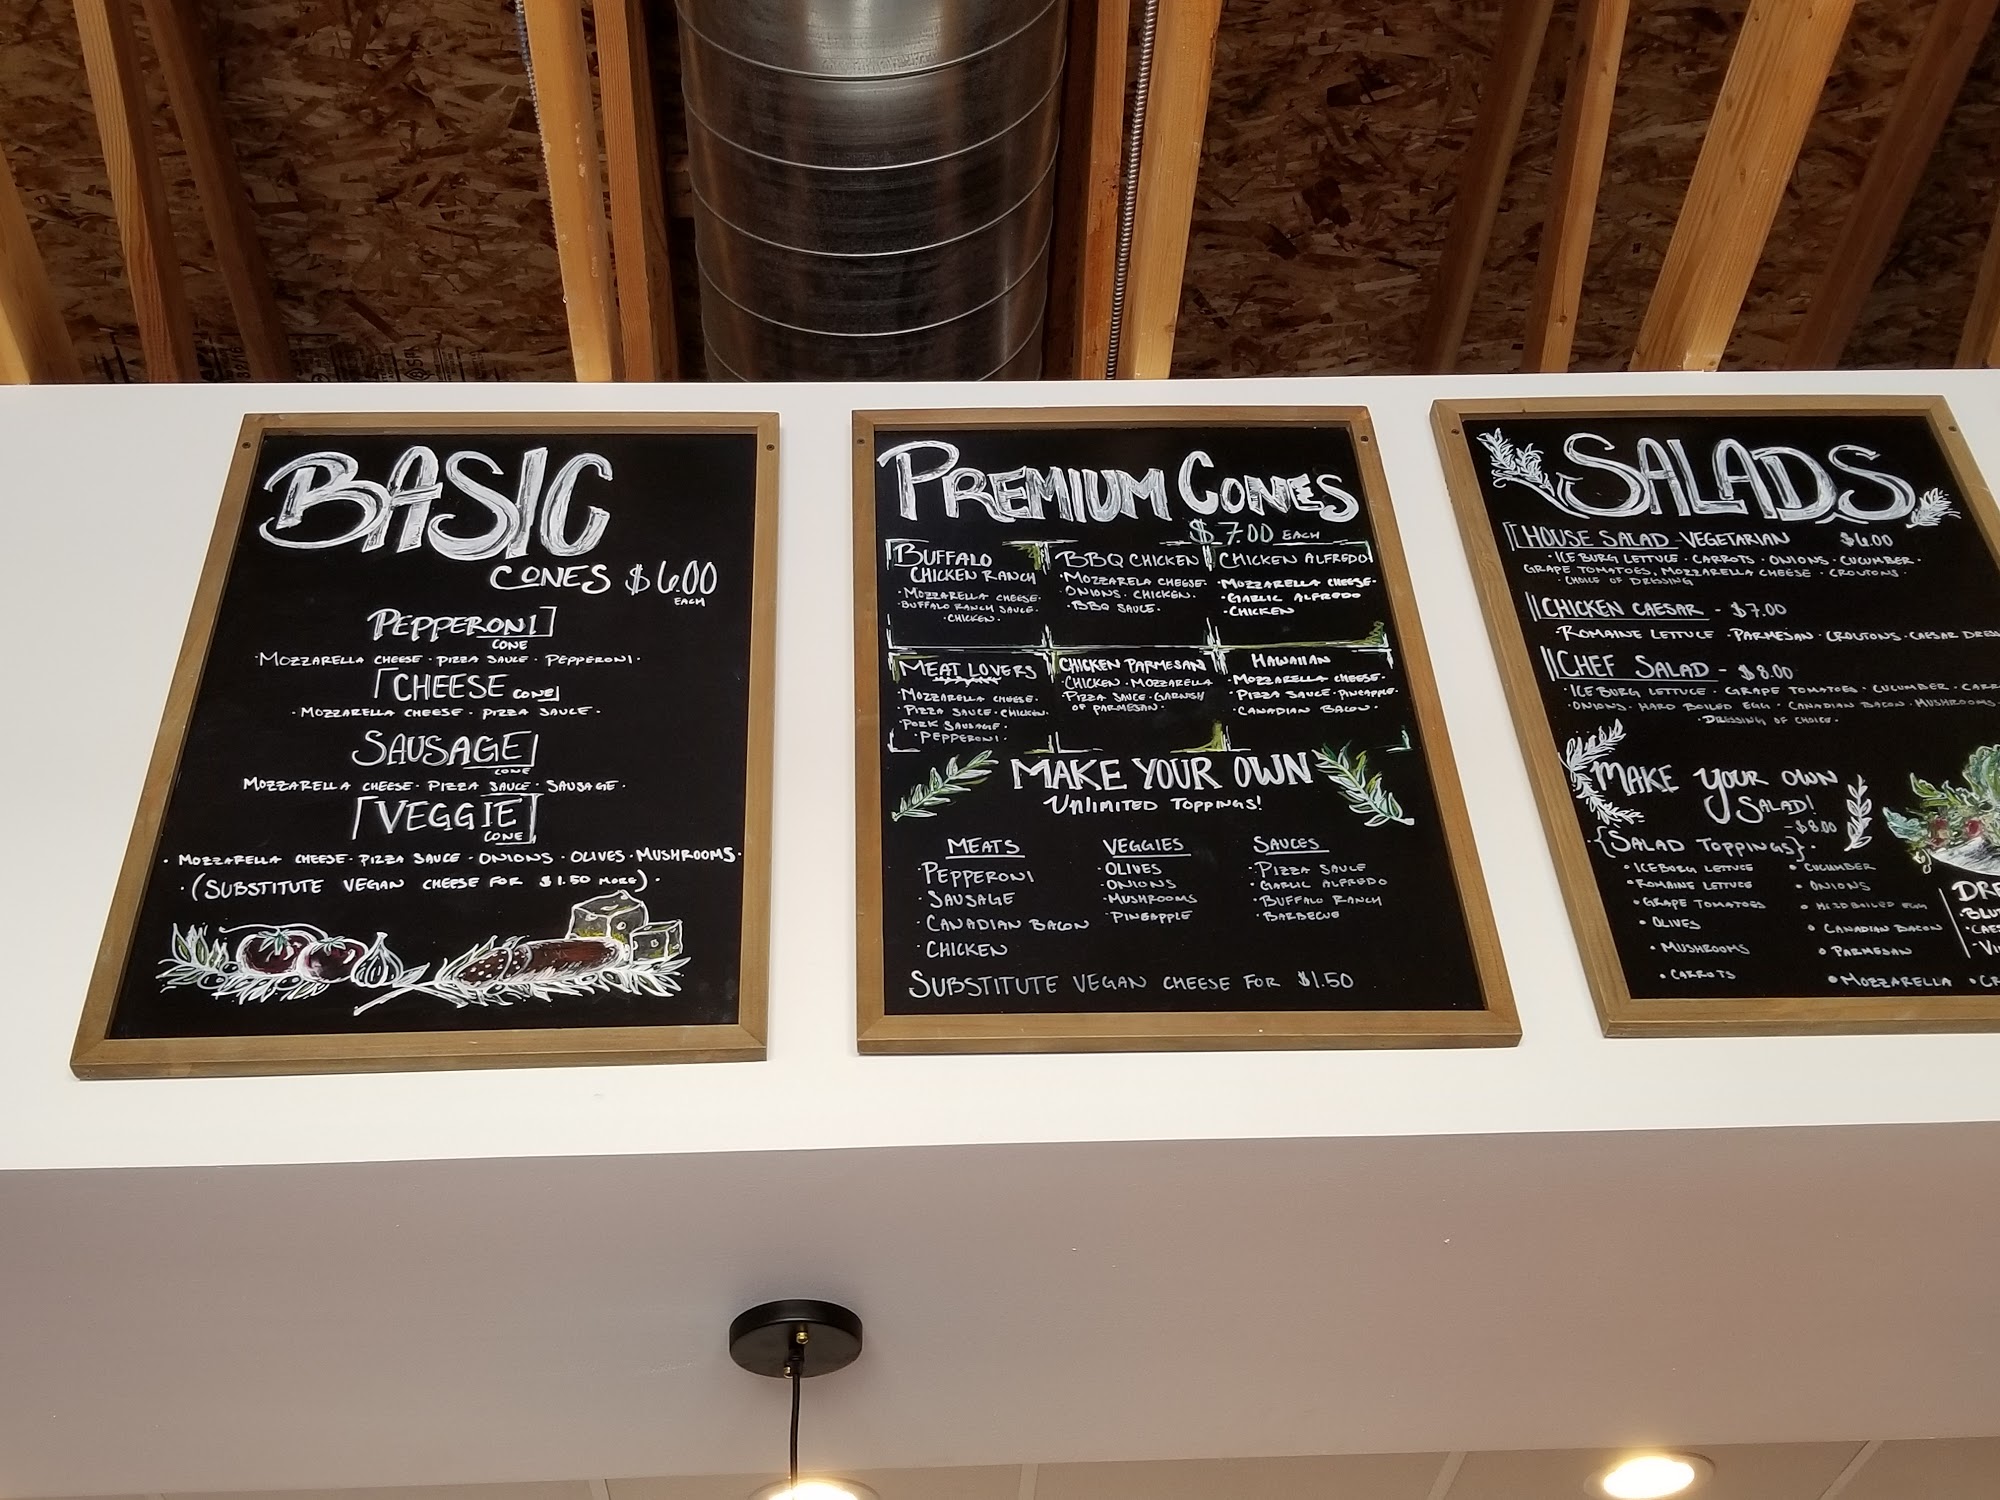 BASIC
CONES $6.00
EACH
PEPPERONI
CONE
MOZZARELLA CHEESE · PIZZA SAUCE · PEPPERONI ·
CHEESE CONE
· MOZZARELLA CHEESE · PIZZA SAUCE ·
SAUSAGE
CONE
MOZZARELLA CHEESE · PIZZA SAUCE · SAUSAGE ·
VEGGIE
CONE
· MOZZARELLA CHEESE · PIZZA SAUCE · ONIONS · OLIVES · MUSHROOMS ·
· (SUBSTITUTE VEGAN CHEESE FOR $1.50 MORE) ·
PREMIUM CONES
$7.00 EACH
BUFFALO
CHICKEN RANCH
· MOZZARELLA CHEESE ·
BUFFALO RANCH SAUCE ·
CHICKEN ·
BBQ CHICKEN
· MOZZARELA CHEESE ·
ONIONS · CHICKEN ·
· BBQ SAUCE ·
CHICKEN ALFREDO
· MOZZARELLA CHEESE ·
· GARLIC ALFREDO
· CHICKEN
MEAT LOVERS
· MOZZARELLA CHEESE ·
PIZZA SAUCE · CHICKEN
PORK SAUSAGE ·
· PEPPERONI ·
CHICKEN PARMESAN
CHICKEN · MOZZARELLA
PIZZA SAUCE · GARNISH
OF PARMESAN ·
HAWAIIAN
MOZZARELLA CHEESE ·
· PIZZA SAUCE · PINEAPPLE ·
CANADIAN BACON ·
MAKE YOUR OWN
UNLIMITED TOPPINGS!
MEATS
· PEPPERONI
· SAUSAGE
· CANADIAN BACON
· CHICKEN
VEGGIES
· OLIVES
· ONIONS
· MUSHROOMS
· PINEAPPLE
SAUCES
· PIZZA SAUCE
· GARLIC ALFREDO
· BUFFALO RANCH
· BARBECUE
SUBSTITUTE VEGAN CHEESE FOR $1.50
SALADS
HOUSE SALAD - VEGETARIAN $6.00
· ICE BURG LETTUCE · CARROTS · ONIONS · CUCUMBER ·
GRAPE TOMATOES, MOZZARELLA CHEESE · CROUTONS ·
CHOICE OF DRESSING
CHICKEN CAESAR - $7.00
· ROMAINE LETTUCE · PARMESAN · CROUTONS · CAESAR DRESS
CHEF SALAD - $8.00
· ICE BURG LETTUCE · GRAPE TOMATOES · CUCUMBER · CARR
ONIONS · HARD BOILED EGG · CANADIAN BACON · MUSHROOMS ·
DRESSING OF CHOICE ·
MAKE YOUR OWN
SALAD!
- $8.00
{SALAD TOPPINGS} ·
· ICEBURG LETTUCE
· ROMAINE LETTUCE
· GRAPE TOMATOES
· OLIVES
· MUSHROOMS
· CARROTS
· CUCUMBER
· ONIONS
· HARDBOILED EGG
· CANADIAN BACON
· PARMESAN
· MOZZARELLA · CR
DRE
· BLU
· CAES
· VI